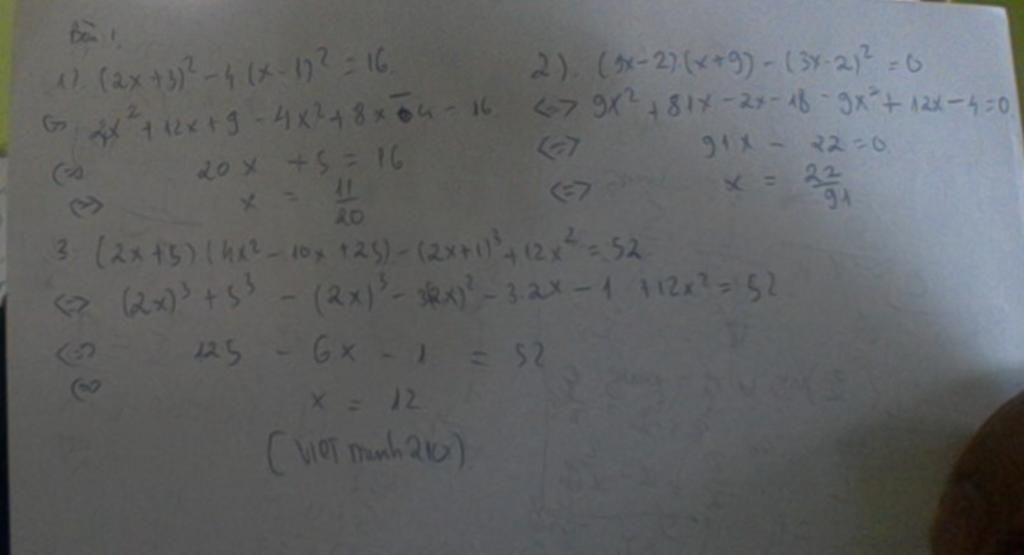 Bài 1.
1). (2x+3)² - 4(x-1)² = 16.
<=> 4x² + 12x + 9 - 4x² + 8x - 4 = 16
<=> 20x + 5 = 16
<=> x = 11/20
2). (9x-2)(x+9) - (3x-2)² = 0
<=> 9x² + 81x - 2x - 18 - 9x² + 12x - 4 = 0
<=> 91x - 22 = 0
<=> x = 22/91
3. (2x+5)(4x² - 10x + 25) - (2x+1)³ + 12x² = 52
<=> (2x)³ + 5³ - (2x)³ - 3(2x)² - 3.2x - 1 + 12x² = 52
<=> 125 - 6x - 1 = 52
<=> x = 12
(VIOTminh210)